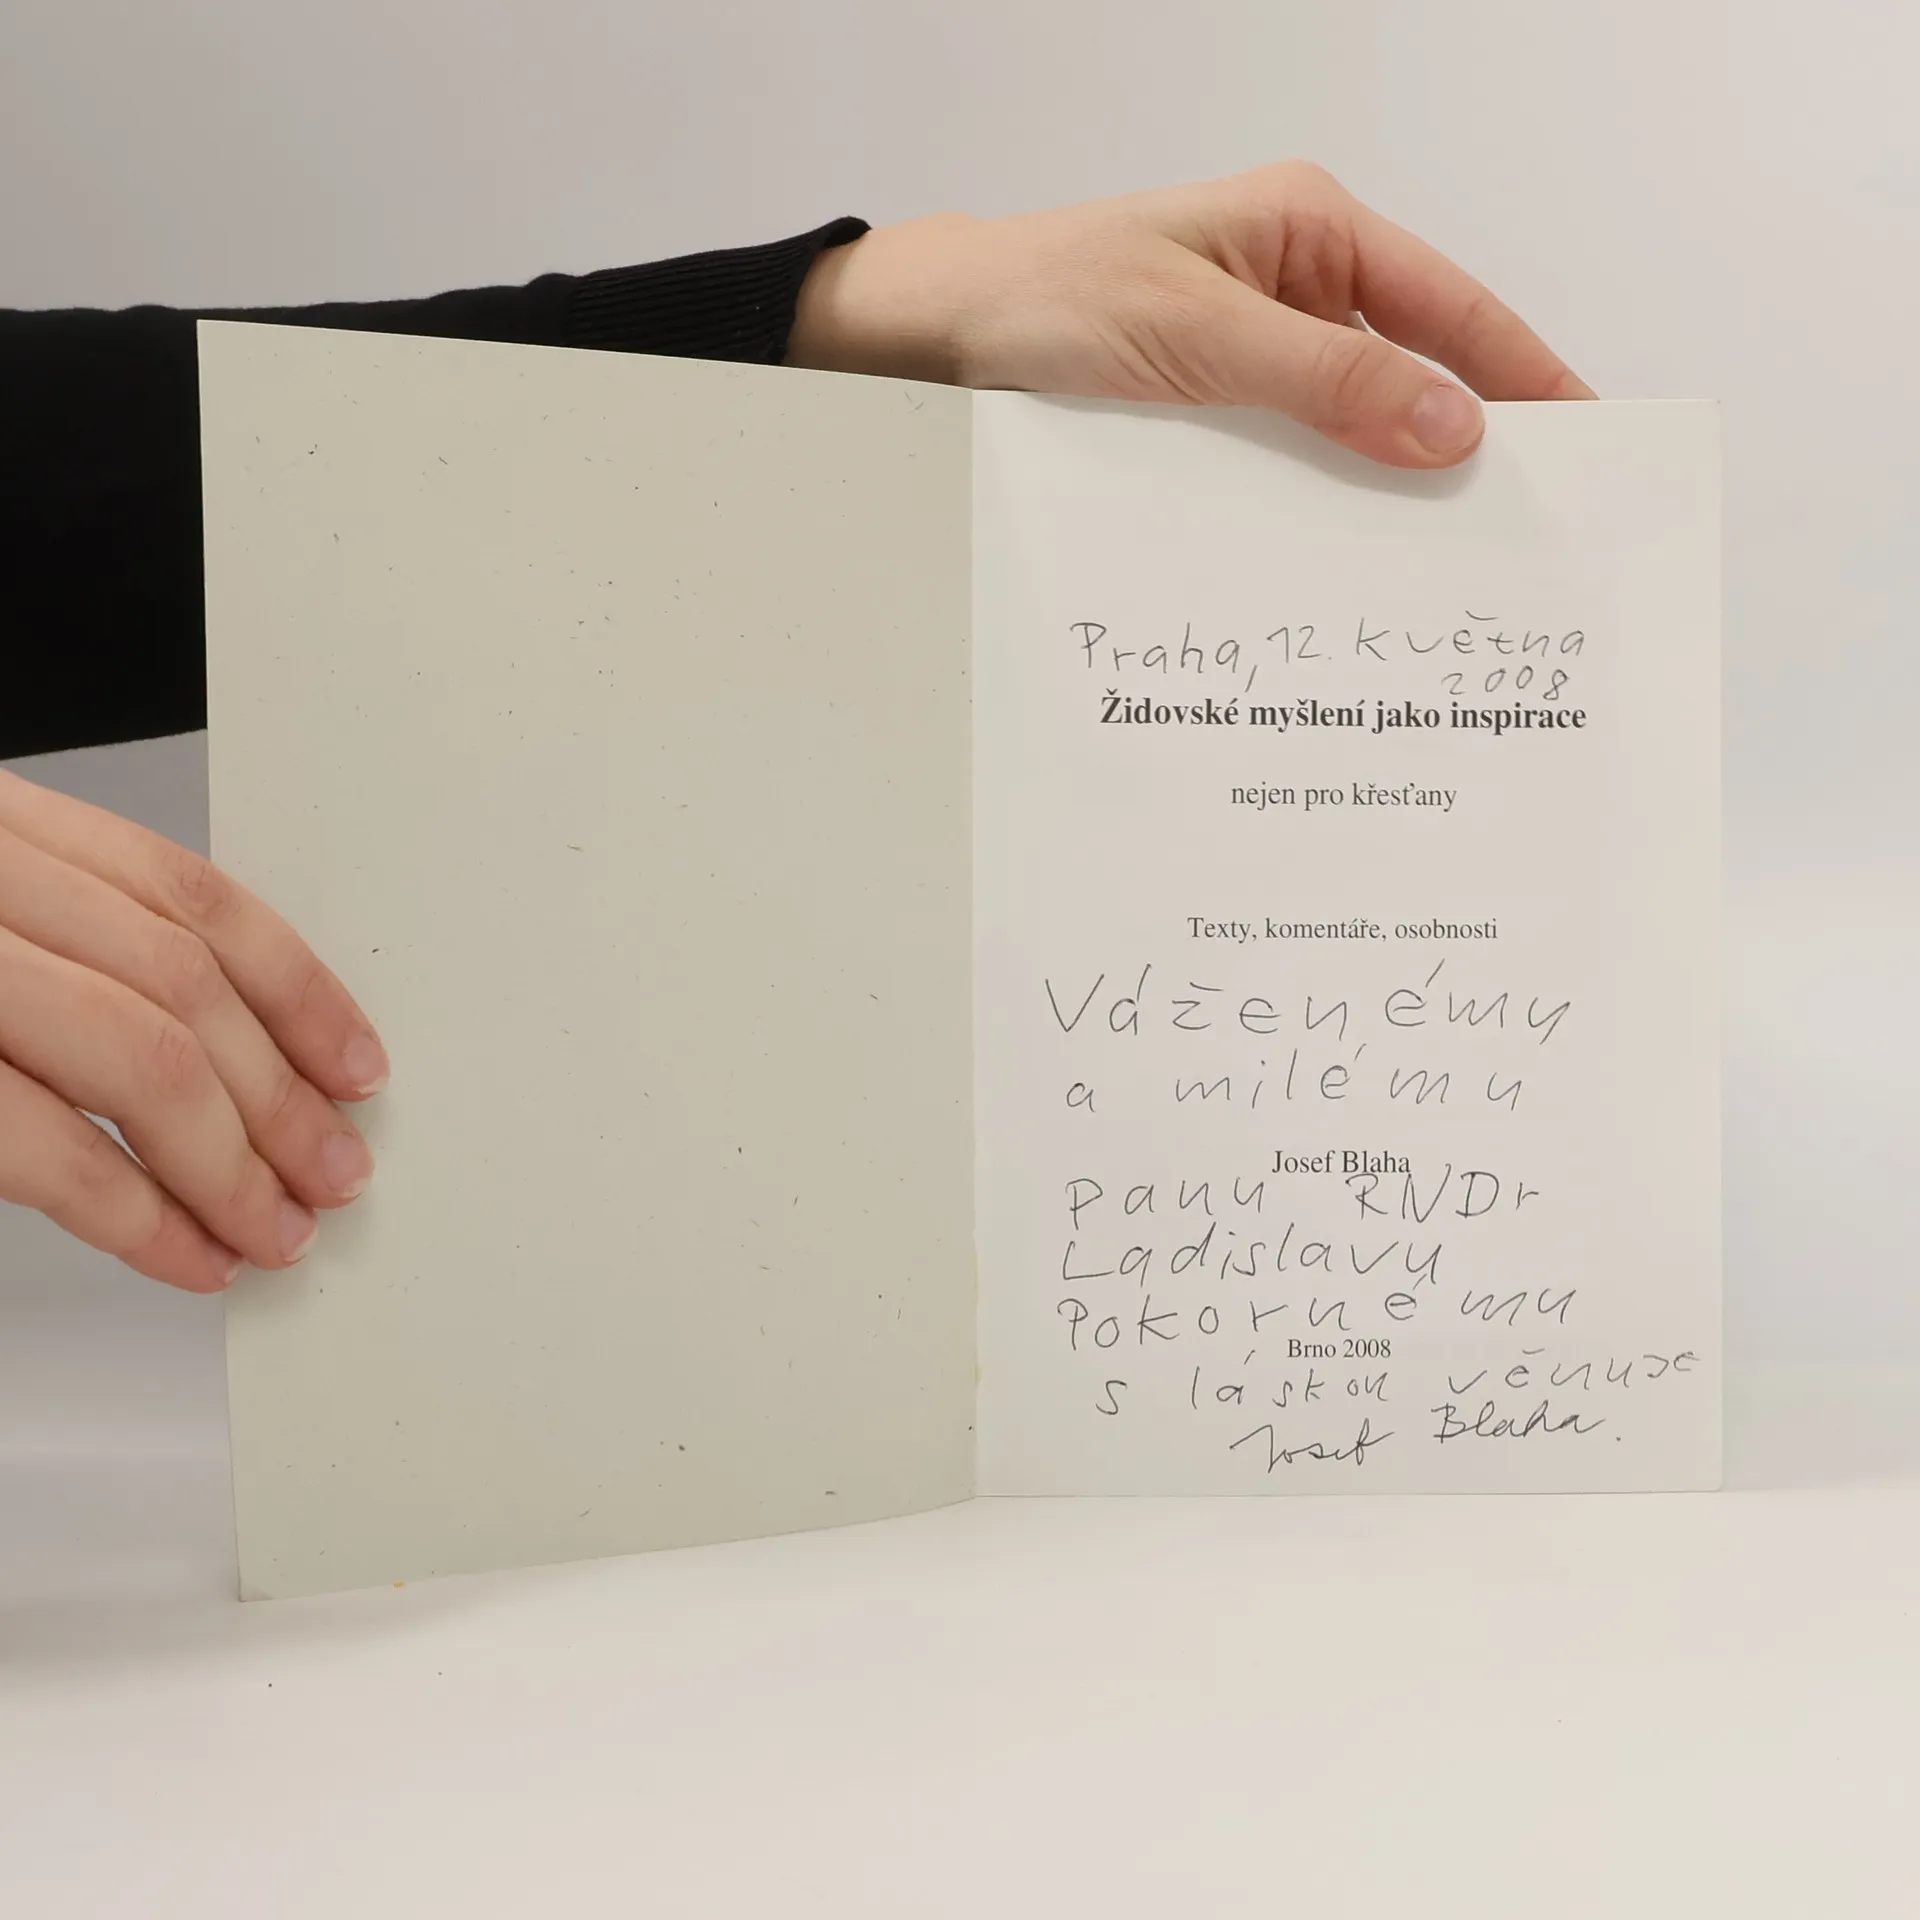 Praha, 12. května
2008
Židovské myšlení jako inspirace
nejen pro křesťany
Texty, komentáře, osobnosti
Váženému
a milému
Josef Blaha
panu RNDr
Ladislavu
Pokornému
Brno 2008
s láskou věnuje
Josef Blaha.